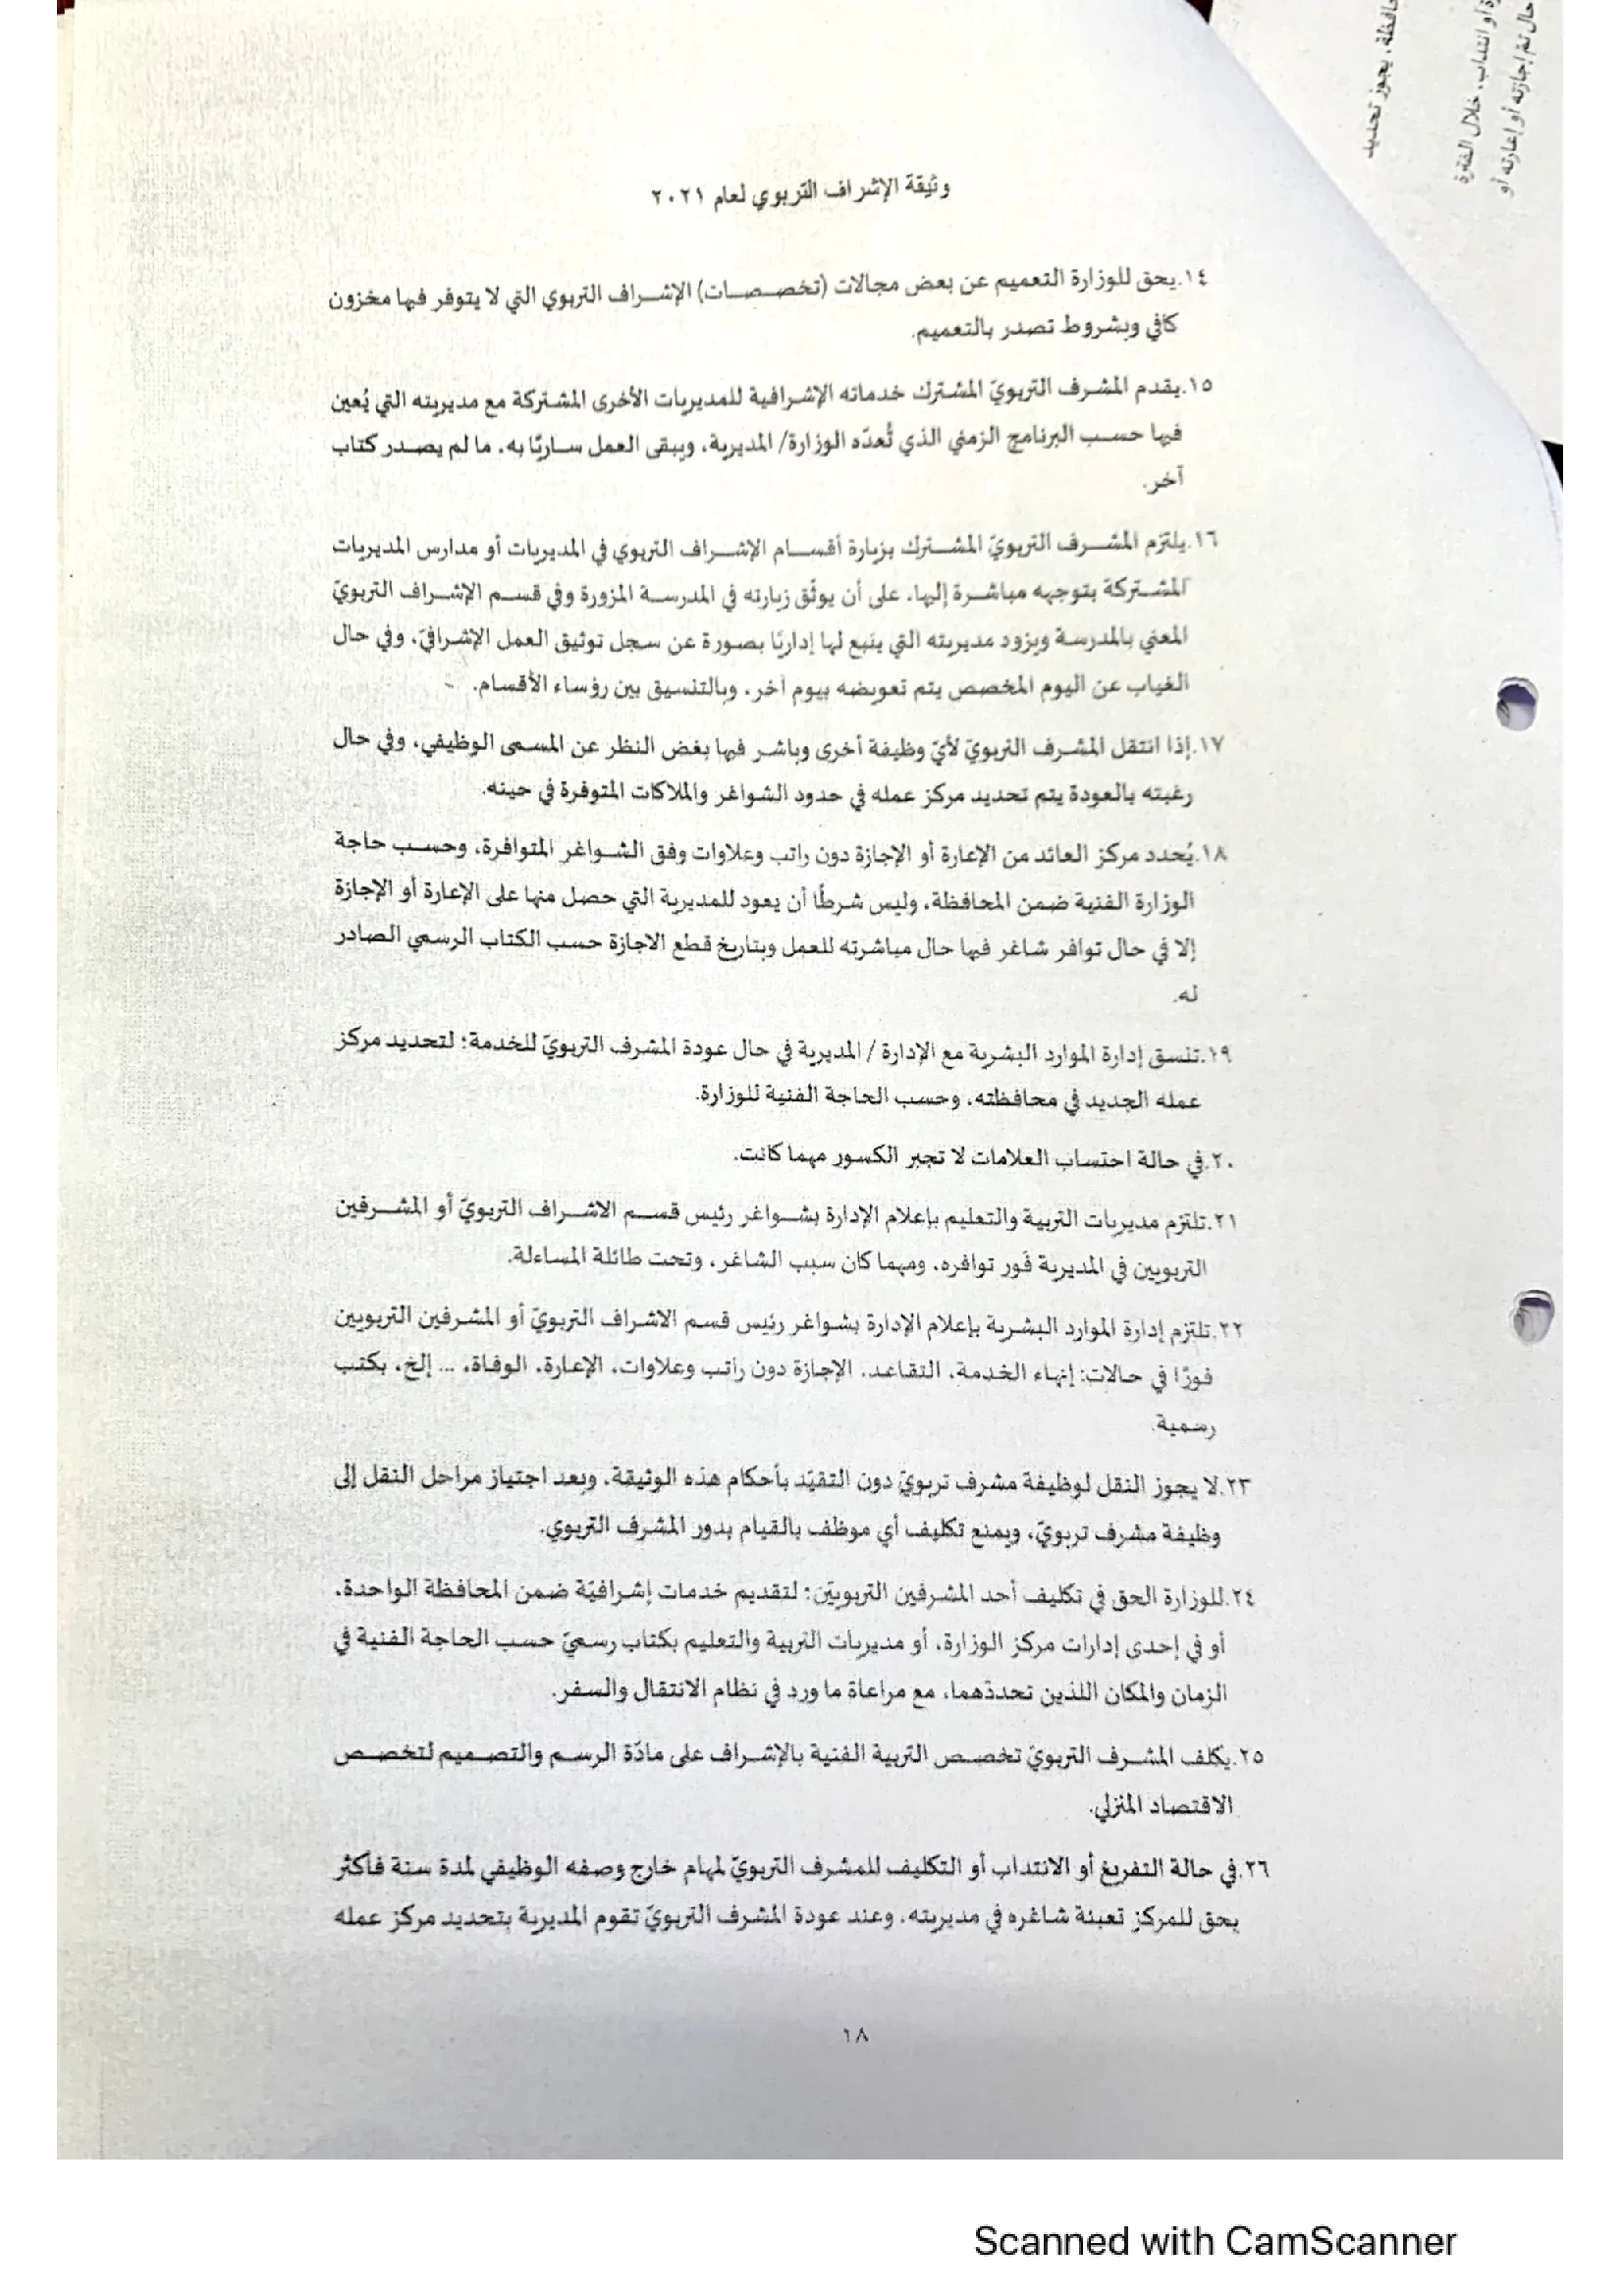 وثيقة الإشراف التربوي لعام ٢٠٢١
١٤.يحق للوزارة التعميم عن بعض مجالات (تخصصات) الإشراف التربوي التي لا يتوفر فيها مخزون
كافي وبشروط تصدر بالتعميم.
١٥.يقدم المشرف التربويّ المشترك خدماته الإشرافية للمديريات الأخرى المشتركة مع مديريته التي يُعين
فيها حسب البرنامج الزمني الذي تُعدّه الوزارة/ المديرية، ويبقى العمل ساريًا به، ما لم يصدر كتاب
آخر.
١٦.يلتزم المشرف التربويّ المشترك بزيارة أقسام الإشراف التربوي في المديريات أو مدارس المديريات
المشتركة بتوجهه مباشرة إليها، على أن يوثّق زيارته في المدرسة المزورة وفي قسم الإشراف التربويّ
المعني بالمدرسة ويزود مديريته التي يتبع لها إداريًا بصورة عن سجل توثيق العمل الإشرافيّ، وفي حال
الغياب عن اليوم المخصص يتم تعويضه بيوم آخر، وبالتنسيق بين رؤساء الأقسام.
١٧.إذا انتقل المشرف التربويّ لأيّ وظيفة أخرى وباشر فيها بغض النظر عن المسمى الوظيفي، وفي حال
رغبته بالعودة يتم تحديد مركز عمله في حدود الشواغر والملاكات المتوفرة في حينه.
١٨.يُحدد مركز العائد من الإعارة أو الإجازة دون راتب وعلاوات وفق الشواغر المتوافرة، وحسب حاجة
الوزارة الفنية ضمن المحافظة، وليس شرطًا أن يعود للمديرية التي حصل منها على الإعارة أو الإجازة
إلا في حال توافر شاغر فيها حال مباشرته للعمل وبتاريخ قطع الاجازة حسب الكتاب الرسمي الصادر
له.
١٩.تنسق إدارة الموارد البشرية مع الإدارة / المديرية في حال عودة المشرف التربويّ للخدمة؛ لتحديد مركز
عمله الجديد في محافظته، وحسب الحاجة الفنية للوزارة.
٢٠.في حالة احتساب العلامات لا تجبر الكسور مهما كانت.
٢١.تلتزم مديريات التربية والتعليم بإعلام الإدارة بشواغر رئيس قسم الاشراف التربويّ أو المشرفين
التربويين في المديرية فور توافره، ومهما كان سبب الشاغر، وتحت طائلة المساءلة.
٢٢.تلتزم إدارة الموارد البشرية بإعلام الإدارة بشواغر رئيس قسم الاشراف التربويّ أو المشرفين التربويين
فورًا في حالات: إنهاء الخدمة، التقاعد، الإجازة دون راتب وعلاوات، الإعارة، الوفاة، ... إلخ، بكتب
رسمية.
٢٣.لا يجوز النقل لوظيفة مشرف تربويّ دون التقيّد بأحكام هذه الوثيقة، وبعد اجتياز مراحل النقل إلى
وظيفة مشرف تربويّ، ويمنع تكليف أي موظف بالقيام بدور المشرف التربوي.
٢٤.للوزارة الحق في تكليف أحد المشرفين التربويّين؛ لتقديم خدمات إشرافيّة ضمن المحافظة الواحدة،
أو في إحدى إدارات مركز الوزارة، أو مديريات التربية والتعليم بكتاب رسميّ حسب الحاجة الفنية في
الزمان والمكان اللذين تحددهما، مع مراعاة ما ورد في نظام الانتقال والسفر.
٢٥.يكلف المشرف التربويّ تخصص التربية الفنية بالإشراف على مادّة الرسم والتصميم لتخصص
الاقتصاد المنزلي.
٢٦.في حالة التفريغ أو الانتداب أو التكليف للمشرف التربويّ لمهام خارج وصفه الوظيفي لمدة سنة فأكثر
يحق للمركز تعبئة شاغره في مديريته، وعند عودة المشرف التربويّ تقوم المديرية بتحديد مركز عمله
١٨
حافظة، يجوز تحديد
أو انتداب، خلال الفترة
حال تم إجازته أو إعارته أو
Scanned with CamScanner